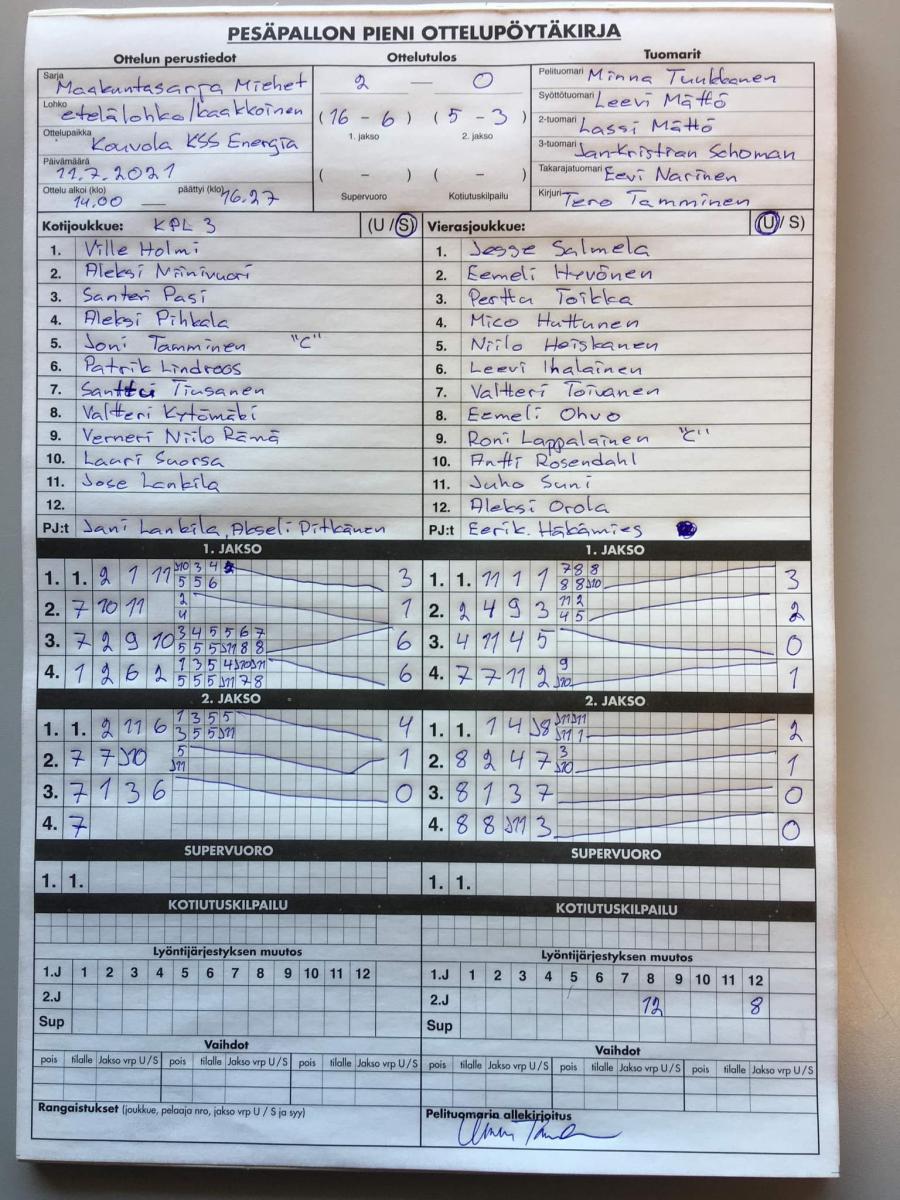 PESÄPALLON PIENI OTTELUPÖYTÄKIRJA
Ottelun perustiedot
Sarja Maakuntasarja Miehet
Lohko etelälohko/kaakkoinen
Ottelupaikka Kouvola KSS Energia
Päivämäärä 11.7.2021
Ottelu alkoi (klo) 14.00 — päättyi (klo) 16.27
Ottelutulos
2 — 0
(16 - 6) (5 - 3)
1. jakso 2. jakso
( - ) ( - )
Supervuoro Kotiutuskilpailu
Tuomarit
Pelituomari Minna Tuukkanen
Syöttötuomari Leevi Mättö
2-tuomari Lassi Mättö
3-tuomari Jan-Kristian Schoman
Takarajatuomari Eevi Narinen
Kirjuri Tero Tamminen
Kotijoukkue: KPL 3 (U / S)
1. Ville Holmi
2. Aleksi Niinivuori
3. Santeri Pasi
4. Aleksi Pihkala
5. Joni Tamminen "C"
6. Patrik Lindroos
7. Santtu Tiusanen
8. Valtteri Kytömäki
9. Verneri Niilo Rämä
10. Lauri Suorsa
11. Jose Lankila
12.
PJ:t Jani Lankila, Akseli Pitkänen
Vierasjoukkue: (U / S)
1. Jesse Salmela
2. Eemeli Hyvönen
3. Perttu Toikka
4. Mico Huttunen
5. Niilo Heiskanen
6. Leevi Ihalainen
7. Valtteri Toivanen
8. Eemeli Ohvo
9. Roni Lappalainen "C"
10. Antti Rosendahl
11. Juho Suni
12. Aleksi Orola
PJ:t Eerik Häkämies
1. JAKSO
1. 1. 2 1 11 3
2. 7 10 11 2 4 1
3. 7 2 9 10 3 4 5 5 6 7 6
4. 1 2 6 2 6
2. JAKSO
1. 1. 2 11 6 1 3 5 5 4
2. 7 7 J10 5 J11 1
3. 7 1 3 6 0
4. 7
SUPERVUORO
1. 1.
KOTIUTUSKILPAILU
1. JAKSO
1. 1. 11 1 1 7 8 8 8 8 J10 3
2. 2 4 9 3 11 2 4 5 2
3. 4 11 4 5 0
4. 7 7 11 2 9 J10 1
2. JAKSO
1. 1. 1 4 J8 J11 J11 J11 1 2
2. 8 2 4 7 3 J10 1
3. 8 1 3 7 0
4. 8 8 J11 3 0
SUPERVUORO
1. 1.
KOTIUTUSKILPAILU
Lyöntijärjestyksen muutos
1.J 1 2 3 4 5 6 7 8 9 10 11 12
2.J
Sup
Vaihdot
pois tilalle Jakso vrp U / S pois tilalle Jakso vrp U / S pois tilalle Jakso vrp U / S
Rangaistukset (joukkue, pelaaja nro, jakso vrp U / S ja syy)
Lyöntijärjestyksen muutos
1.J 1 2 3 4 5 6 7 8 9 10 11 12
2.J 12 8
Sup
Vaihdot
pois tilalle Jakso vrp U / S pois tilalle Jakso vrp U / S pois tilalle Jakso vrp U / S
Pelituomarin allekirjoitus